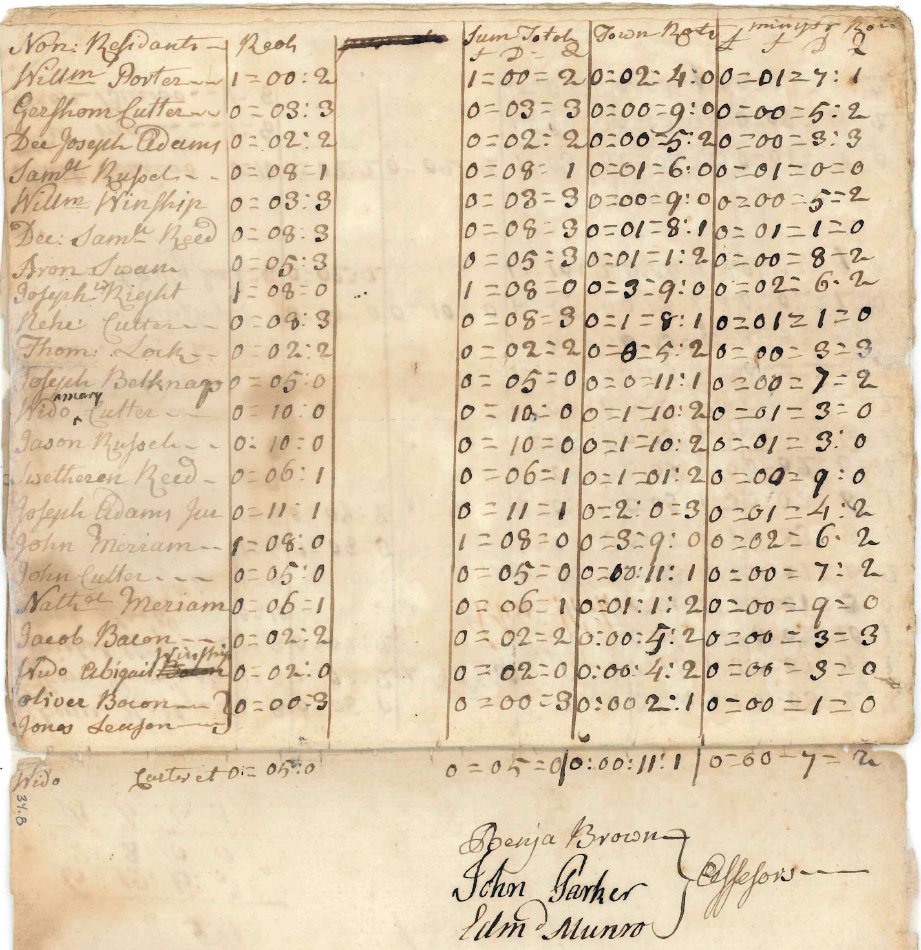 Non: Residants Reol Sum Totel Town Rate ministr Rate
£ D = Q £ £ D Q
Willm Porter -- 1=00:2 1=00=2 0=02=4:0 0=01=7:1
Gershom Cutter -- 0=03:3 0=03=3 0=00=9:0 0=00=5:2
Dec Joseph Adams 0=02:2 0=02:2 0=00=5:2 0=00=3:3
Samll Russel - - 0=08:1 0=08=1 0=01=6:0 0=01=0=0
Willm Winship 0=03:3 0=03=3 0=00=9:0 0=00=5=2
Dec: Samll Reed 0=08:3 0=08=3 0=01=8:1 0=01=1=0
Aron Swan 0=05:3 0=05=3 0=01=1:2 0=00=8=2
Joseph Right 1=08=0 1=08=0 0=3=9:0 0=02=6=2
Nehe: Cutter -- 0=08:3 0=08=3 0=1=8:1 0=01=1=0
Thom: Lock -- 0=02:2 0=02=2 0=0=5:2 0=00=3=3
Joseph Belknap 0=05:0 0=05=0 0=0=11:1 0=00=7=2
Wido mary Cutter --- 0=10:0 0=10=0 0=1=10:2 0=01=3=0
Jason Russel - - 0:10=0 0=10=0 0=1=10:2 0=01=3:0
Swetheren Reed - 0=06:1 0=06=1 0=1=01:2 0=00=9:0
Joseph Adams Jur 0=11:1 0=11=1 0=2:0=3 0=01=4:2
John Meriam -- 1=08:0 1=08=0 0=3=9:0 0=02=6=2
John Cutter --- 0=05:0 0=05=0 0=00:11:1 0=00=7:2
Nathel Meriam 0=06=1 0=06=1 0=01:1:2 0=00=9=0
Jacob Bacon -- 0=02:2 0=02=2 0:00:5:2 0=00=3=3
Wido Abigail Winship 0=02:0 0=02=0 0:00:4:2 0=00=3=0
Oliver Bacon -- 0=00:3 0=00=3 0:00 2:1 0=00=1=0
Jonas Leason
Wido Carteret 0=05:0 0=05=0 0:00:11:1 0=00=7=2
34.8
Benja Brown
John Parker Assessors
Edmd Munro